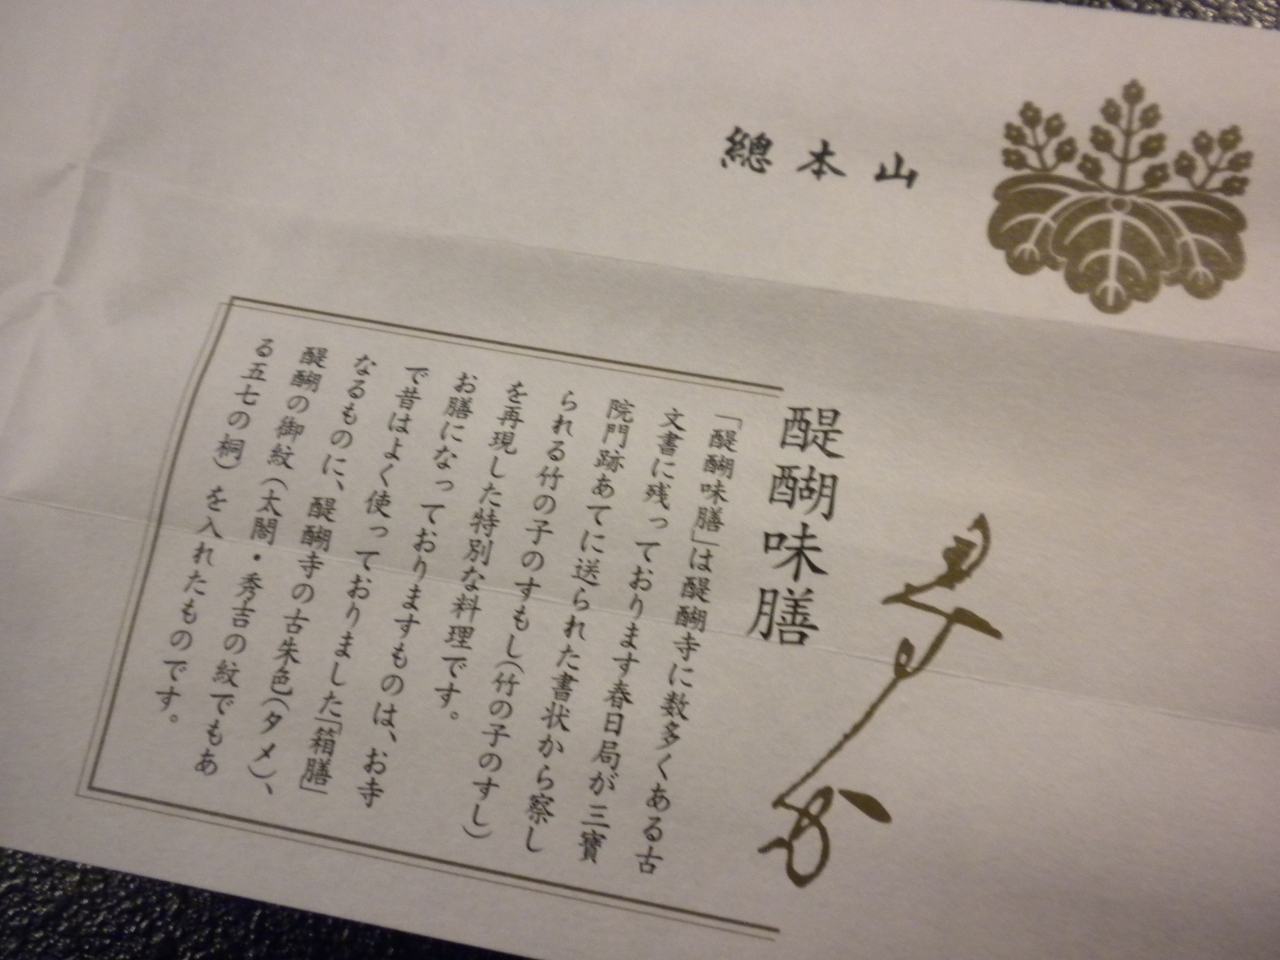 總本山
醍醐味膳
「醍醐味膳」は醍醐寺に数多くある古
文書に残っております春日局が三寳
院門跡あてに送られた書状から察し
られる竹の子のすもし(竹の子のすし)
を再現した特別な料理です。
お膳になっておりますものは、お寺
で昔はよく使っておりました「箱膳」
なるものに、醍醐寺の古朱色(タメ)、
醍醐の御紋(太閤・秀吉の紋でもあ
る五七の桐)を入れたものです。